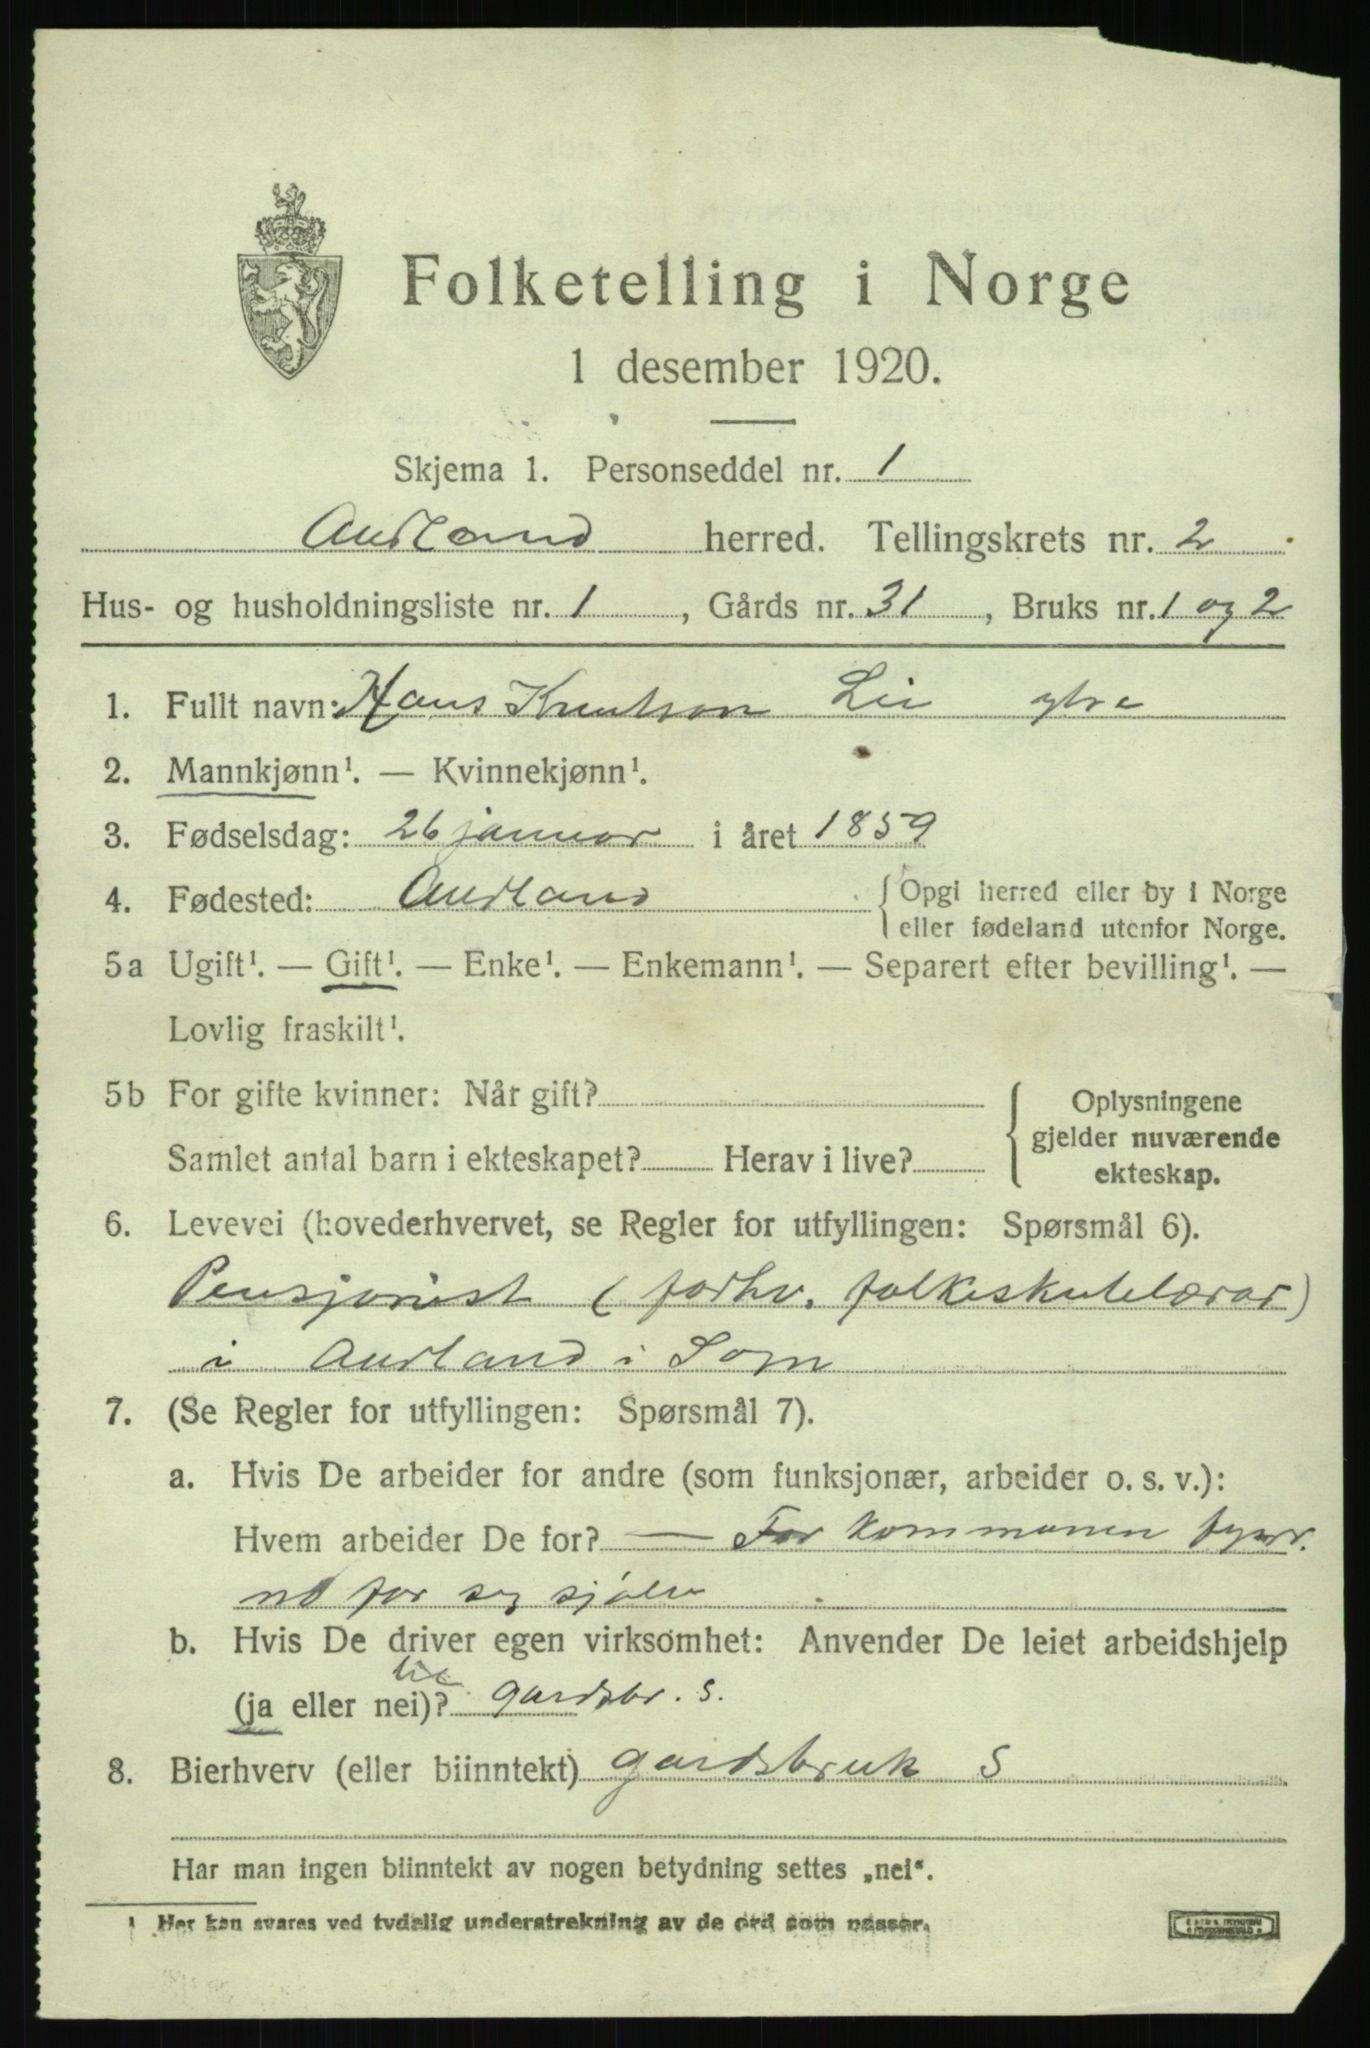 Folketelling i Norge
1 desember 1920.
Skjema 1. Personseddel nr. 1
Aurland herred. Tellingskrets nr. 2
Hus- og husholdningsliste nr. 1, Gårds nr. 31, Bruks nr. 1 og 2
1. Fullt navn: Hans Knutson Lie ytre
2. Mannkjønn¹. — Kvinnekjønn¹.
3. Fødselsdag: 26 januar i året 1859
4. Fødested: Aurland { Opgi herred eller by i Norge
eller fødeland utenfor Norge.
5a Ugift¹. — Gift¹. — Enke¹. — Enkemann¹. — Separert efter bevilling¹. —
Lovlig fraskilt¹.
5b For gifte kvinner: Når gift?
Samlet antal barn i ekteskapet? Herav i live?
{ Oplysningene
gjelder nuværende
ekteskap.
6. Levevei (hovederhvervet, se Regler for utfyllingen: Spørsmål 6).
Pensjonist (forhv. folkeskulelærar)
i Aurland i Sogn
7. (Se Regler for utfyllingen: Spørsmål 7).
a. Hvis De arbeider for andre (som funksjonær, arbeider o. s. v.):
Hvem arbeider De for? — For kommunen fyrr.
no for seg sjølv
b. Hvis De driver egen virksomhet: Anvender De leiet arbeidshjelp
til
(ja eller nei)? gardsbr. s.
8. Bierhverv (eller biinntekt) gardsbruk s
Har man ingen biinntekt av nogen betydning settes „nei“.
¹ Her kan svares ved tydelig understrekning av de ord som passer.